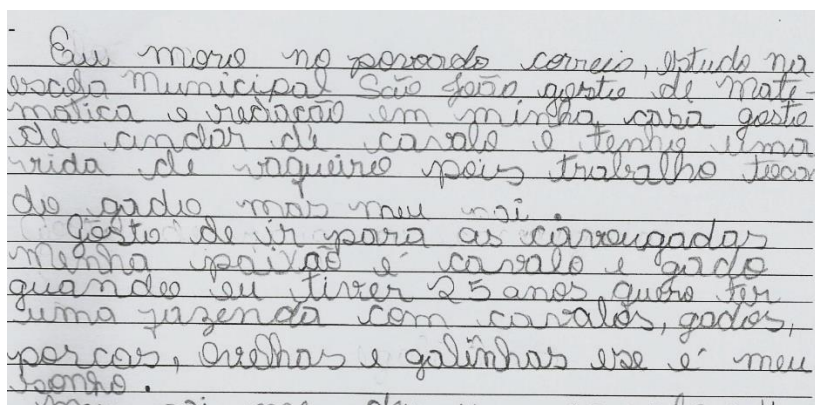 Eu moro no povoado correio, estudo na
escola Municipal São João gosto de Mate-
mática e redação em minha casa gosto
de andar de cavalo e tenho uma
vida de vaqueiro pois trabalho tocan
do gado mais meu pai.
Gosto de ir para as cavaugadas
minha paixão é cavalo e gado
quando eu tiver 25 anos quero ter
uma fazenda com cavalos, gados,
porcos, ovelhas e galinhas ese é meu
sonho.